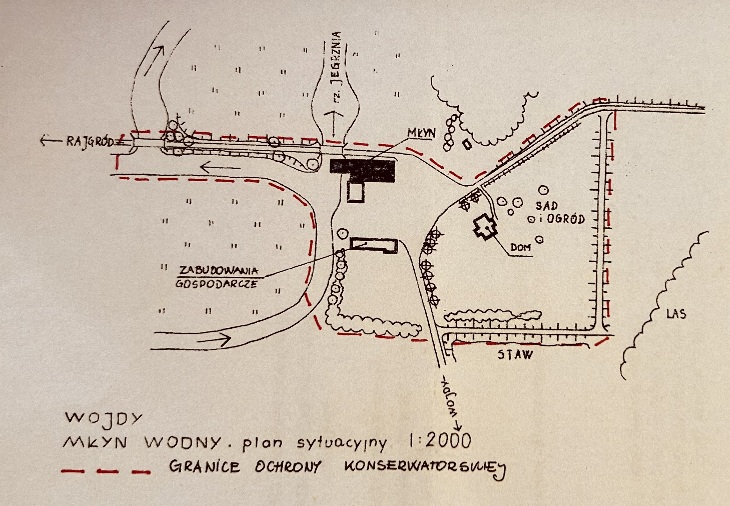 rz. JEGRZNIA
MŁYN
RAJGRÓD
SAD
i OGRÓD
DOM
ZABUDOWANIA
GOSPODARCZE
LAS
STAW
WOJDY
WOJDY
MŁYN WODNY. plan sytuacyjny 1:2000
GRANICE OCHRONY KONSERWATORSKIEJ